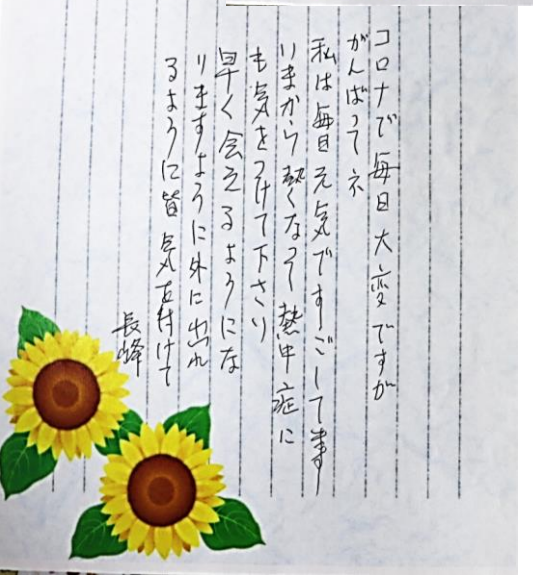 コロナで毎日大変ですが
がんばってネ
私は毎日元気ですごして ます
いまから熱くなって熱中症に
も気をつけて下さり
早く会えるようにな
りますように外に出れ
るように皆気を付けて
長峰